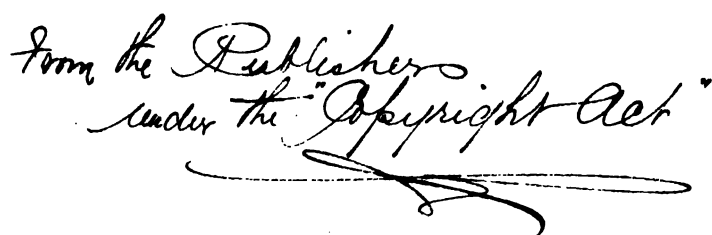 From the Publishers
under the "Copyright Act"